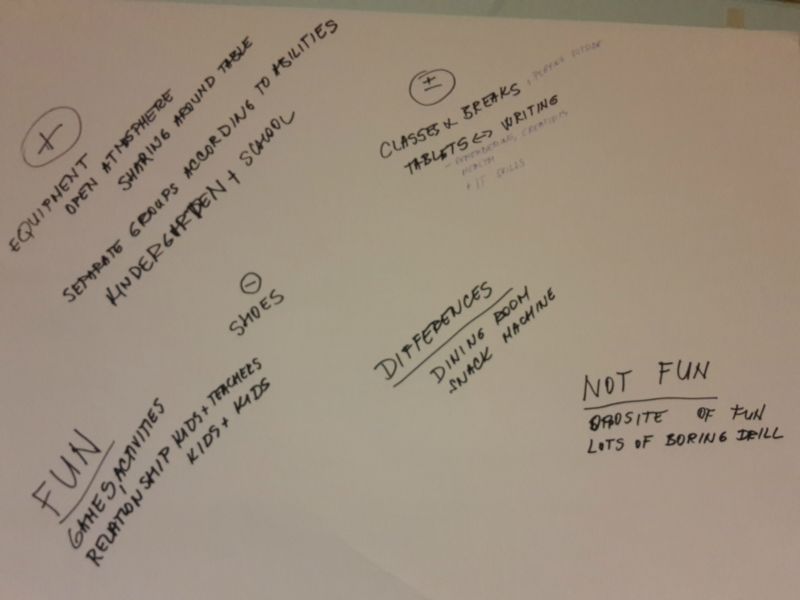 +
EQUIPMENT
OPEN ATMOSPHERE
SHARING AROUND TABLE
SEPARATE GROUPS ACCORDING TO ABILITIES
KINDERGARTEN + SCHOOL
±
CLASSES & BREAKS, PLAYING OUTSIDE
TABLETS <-> WRITING
- REMEMBERING, CREATIVITY
HEALTH
+ IT SKILLS
-
SHOES
DIFFERENCES
DINING ROOM
SNACK MACHINE
FUN
GAMES, ACTIVITIES
RELATIONSHIP KIDS + TEACHERS
KIDS + KIDS
NOT FUN
OPOSITE OF FUN
LOTS OF BORING DRILL